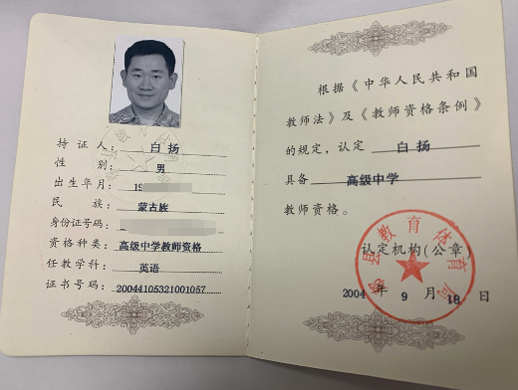 持证人：白扬
性别：男
出生年月：19
民族：蒙古族
身份证号码：
资格种类：高级中学教师资格
任教学科：英语
证书号码：20044105321001057
根据《中华人民共和国
教师法》及《教师资格条例》
的规定，认定 白扬
具备 高级中学
教师资格。
认定机构(公章)
县教育体育局
2004 年 9 月 18 日